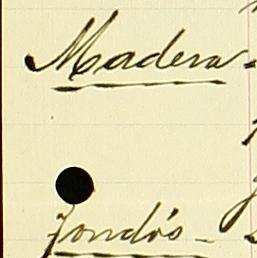 Madera
Jondós-